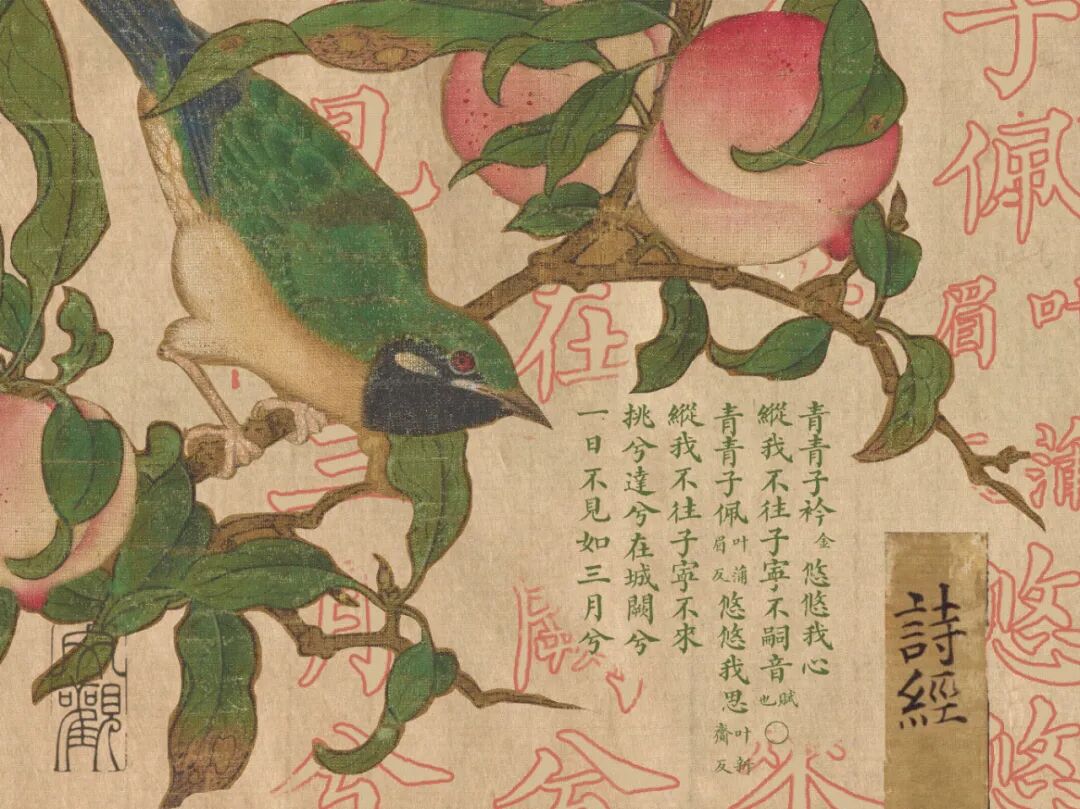 子佩叶蒲眉悠悠
來
在闕兮
見三月兮
詩經
青青子衿金悠悠我心
縱我不往子寧不嗣音賦也〇
青青子佩叶蒲眉反悠悠我思叶新齎反
縱我不往子寧不來
挑兮達兮在城闕兮
一日不見如三月兮